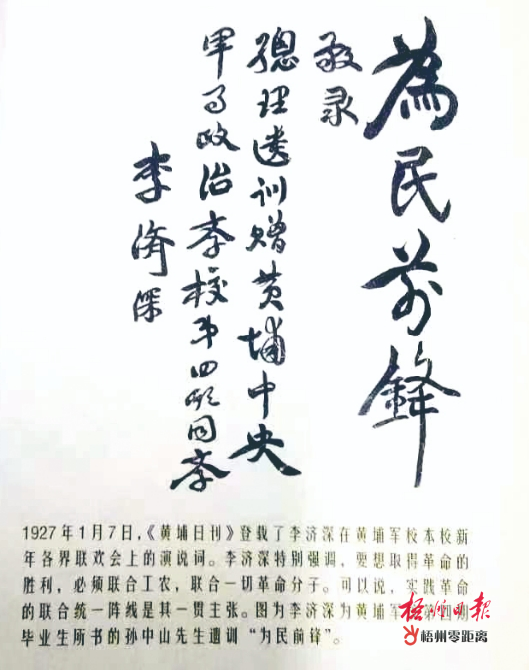 為民前鋒
敬录
總理遺训赠黄埔中央
軍事政治学校第四期同学
李濟深
1927年1月7日，《黄埔日刊》登载了李济深在黄埔军校本校新
年各界联欢会上的演说词。李济深特别强调，要想取得革命的
胜利，必须联合工农，联合一切革命分子。可以说，实践革命
的联合统一阵线是其一贯主张。图为李济深为黄埔军校第四期
毕业生所书的孙中山先生遗训“为民前锋”。
梧州日报
梧州零距离